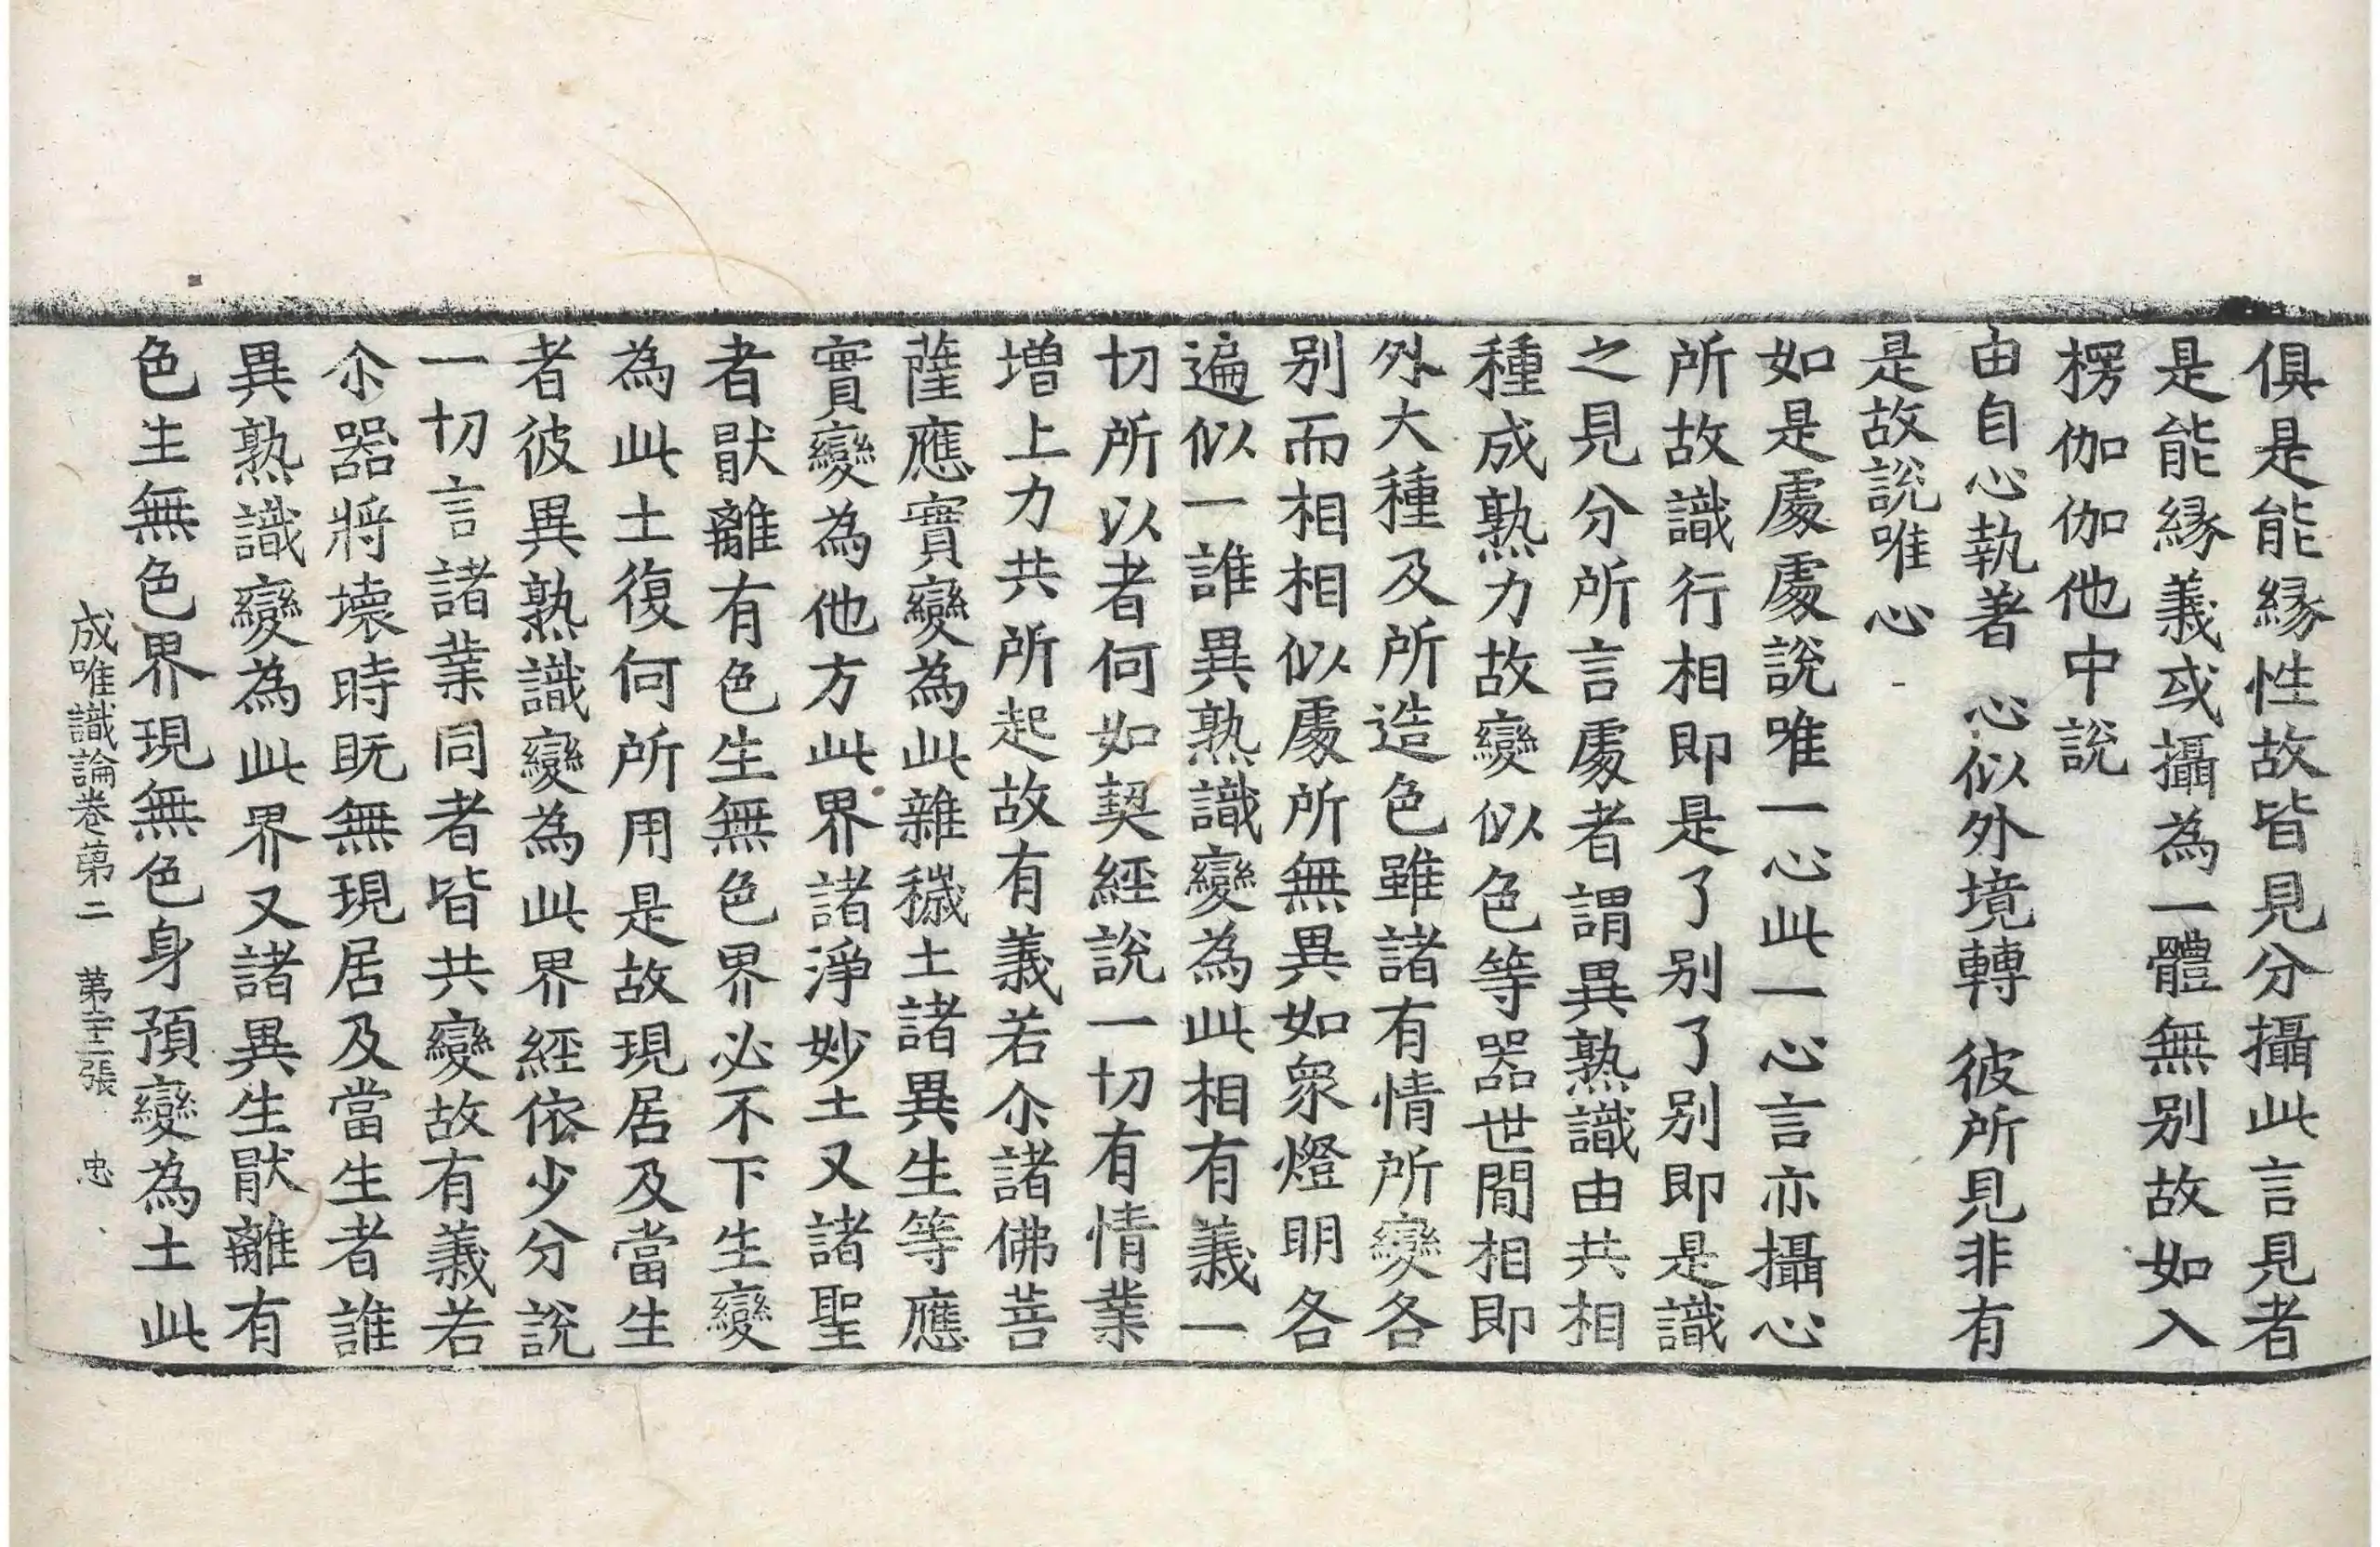 俱是能縁性故皆見分攝此言見者
是能縁義或攝為一體無别故如入
楞伽伽他中說
由自心執著　心似外境轉　彼所見非有
是故說唯心
如是處處說唯一心此一心言亦攝心
所故識行相即是了别了别即是識
之見分所言處者謂異熟識由共相
種成熟力故變似色等器世間相即
外大種及所造色雖諸有情所變各
别而相相似處所無異如衆燈明各
遍似一誰異熟識變為此相有義一
切所以者何如契經說一切有情業
増上力共所起故有義若尒諸佛菩
薩應實變為此雜穢土諸異生等應
實變為他方此界諸淨妙土又諸聖
者猒離有色生無色界必不下生變
為此土復何所用是故現居及當生
者彼異熟識變為此界經依少分說
一切言諸業同者皆共變故有義若
尒器將壊時既無現居及當生者誰
異熟識變為此界又諸異生猒離有
色生無色界現無色身預變為土此
成唯識論卷第二　第二十三張　忠